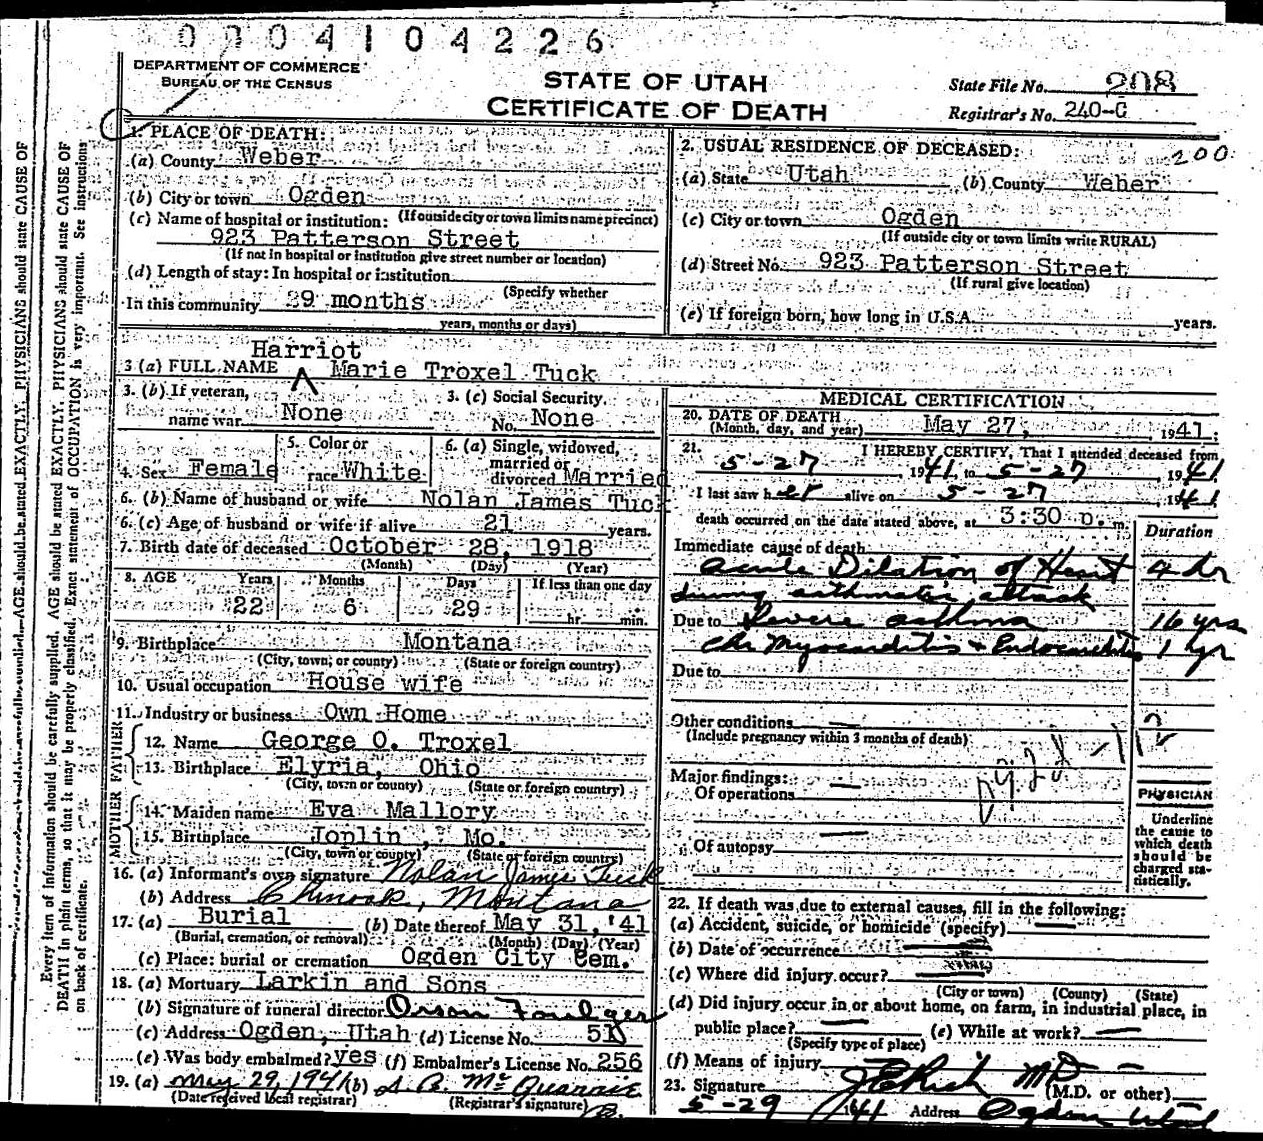 0004104226
DEPARTMENT OF COMMERCE
BUREAU OF THE CENSUS
STATE OF UTAH
CERTIFICATE OF DEATH
State File No. 208
Registrar's No. 240-C
200
1. PLACE OF DEATH:
(a) County Weber
(b) City or town Ogden
(If outside city or town limits name precinct)
(c) Name of hospital or institution:
923 Patterson Street
(If not in hospital or institution give street number or location)
(d) Length of stay: In hospital or institution
(Specify whether
In this community 29 months
years, months or days)
2. USUAL RESIDENCE OF DECEASED:
(a) State Utah (b) County Weber
(c) City or town Ogden
(If outside city or town limits write RURAL)
(d) Street No. 923 Patterson Street
(If rural give location)
(e) If foreign born, how long in U.S.A. years.
Harriot
3 (a) FULL NAME Marie Troxel Tuck
3. (b) If veteran,
name war. None
3. (c) Social Security
No. None
4. Sex Female
5. Color or
race White
6. (a) Single, widowed,
married or
divorced Married
6. (b) Name of husband or wife Nolan James Tuck
6. (c) Age of husband or wife if alive 21 years.
7. Birth date of deceased October 28, 1918
(Month) (Day) (Year)
8. AGE Years Months Days If less than one day
22 6 29 hr. min.
9. Birthplace Montana
(City, town, or county) (State or foreign country)
10. Usual occupation House wife
11. Industry or business Own Home
FATHER
12. Name George O. Troxel
13. Birthplace Elyria, Ohio
(City, town or county) (State or foreign country)
MOTHER
14. Maiden name Eva Mallory
15. Birthplace Joplin, Mo.
(City, town or county) (State or foreign country)
16. (a) Informant's own signature Nolan James Tuck
(b) Address Chinook, Montana
17. (a) Burial (b) Date thereof May 31, '41
(Burial, cremation, or removal) (Month) (Day) (Year)
(c) Place: burial or cremation Ogden City Cem.
18. (a) Mortuary Larkin and Sons
(b) Signature of funeral director Orson Foulger
(c) Address Ogden, Utah (d) License No. 51
(e) Was body embalmed? yes (f) Embalmer's License No. 256
19. (a) May 29, 1941 (b)
(Date received local registrar) (Registrar's signature)
MEDICAL CERTIFICATION
20. DATE OF DEATH
(Month, day, and year) May 27, 1941
21. I HEREBY CERTIFY, That I attended deceased from
5-27 1941 to 5-27, 1941
I last saw her alive on 5-27 1941
death occurred on the date stated above, at 3:30 p. m.
Duration
Immediate cause of death
Acute Dilation of Heart 4 hr
during asthmatic attack
Due to Severe asthma 16 yrs
Chr Myocarditis + Endocarditis 1 yr
Due to
Other conditions
(Include pregnancy within 3 months of death)
Major findings:
Of operations
Of autopsy
PHYSICIAN
Underline
the cause to
which death
should be
charged sta-
tistically.
22. If death was due to external causes, fill in the following:
(a) Accident, suicide, or homicide (specify)
(b) Date of occurrence
(c) Where did injury occur?
(City or town) (County) (State)
(d) Did injury occur in or about home, on farm, in industrial place, in
public place? (e) While at work?
(Specify type of place)
(f) Means of injury
23. Signature J E Rich MD
(M.D. or other)
5-29 1941 Address Ogden Utah
Every item of information should be carefully supplied. AGE should be stated EXACTLY. PHYSICIANS should state CAUSE OF
DEATH in plain terms, so that it may be properly classified. Exact statement of OCCUPATION is very important. See instructions
on back of certificate.